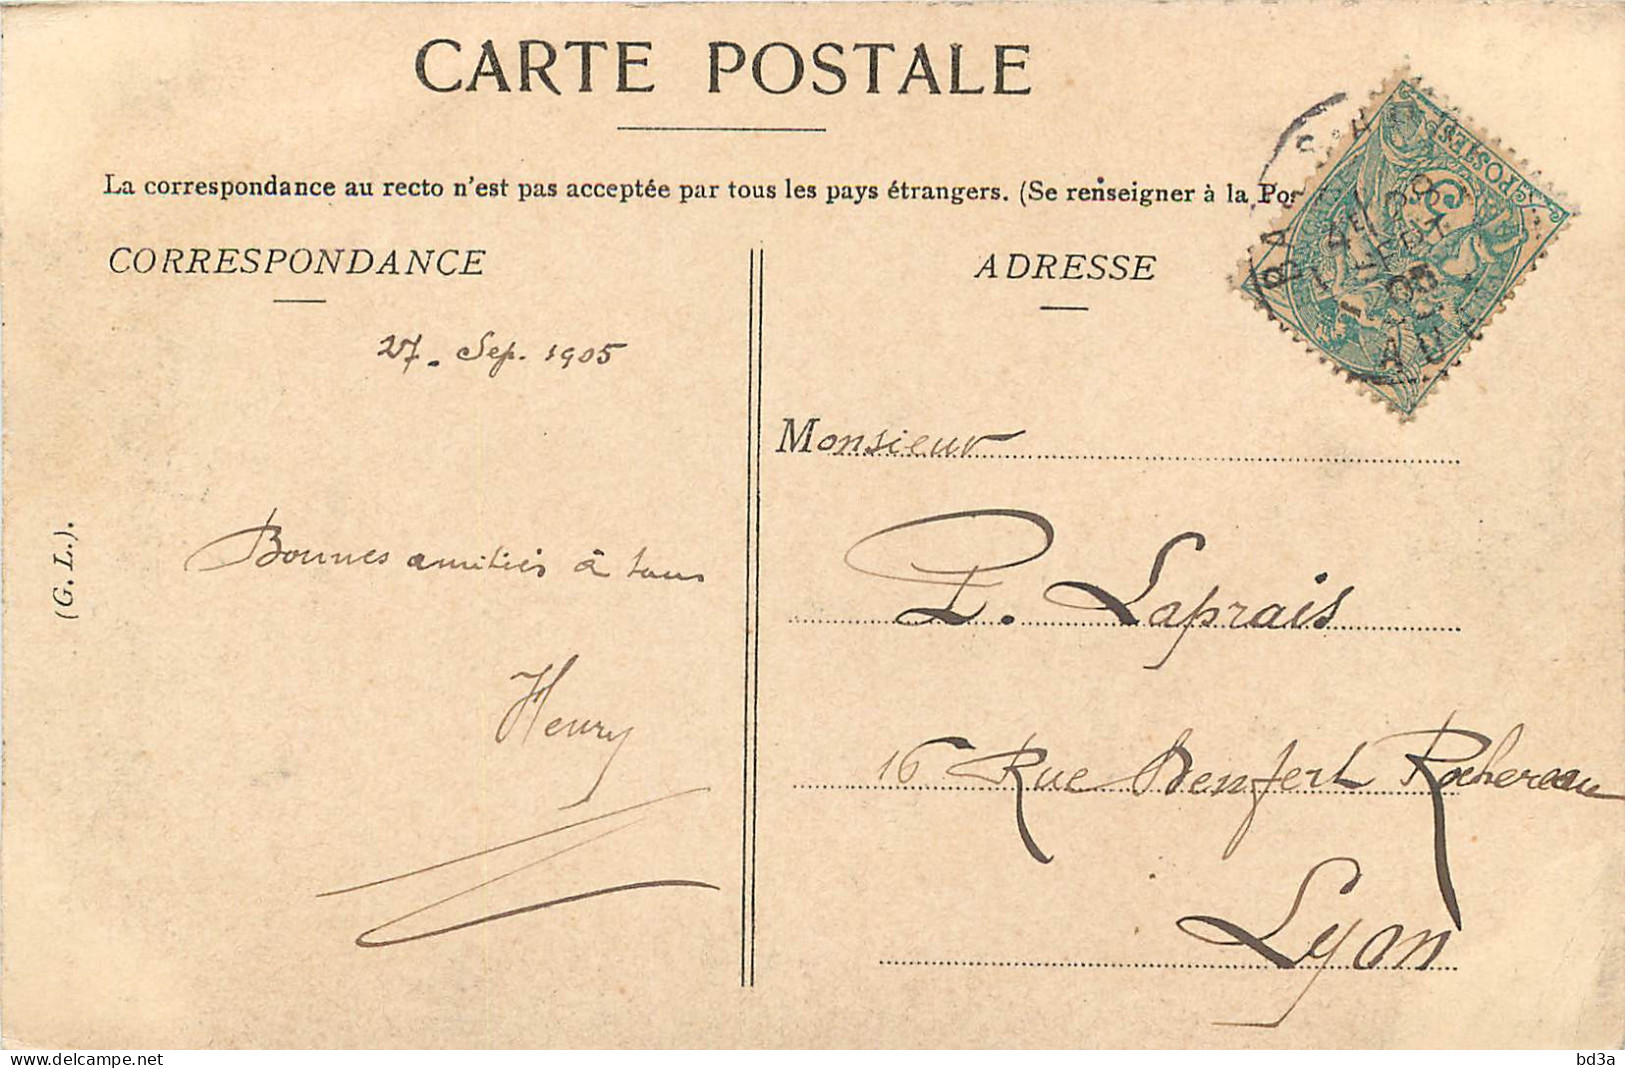 CARTE POSTALE
La correspondance au recto n'est pas acceptée par tous les pays étrangers. (Se renseigner à la Pos
CORRESPONDANCE
ADRESSE
27. Sep. 1905
Monsieur
Bonnes amitiés à tous
P. Laprais
(G. L.).
Henry
16 Rue Denfert Rochereau
Lyon
POSTES
BAR S AU
05
bd3a
www.delcampe.net